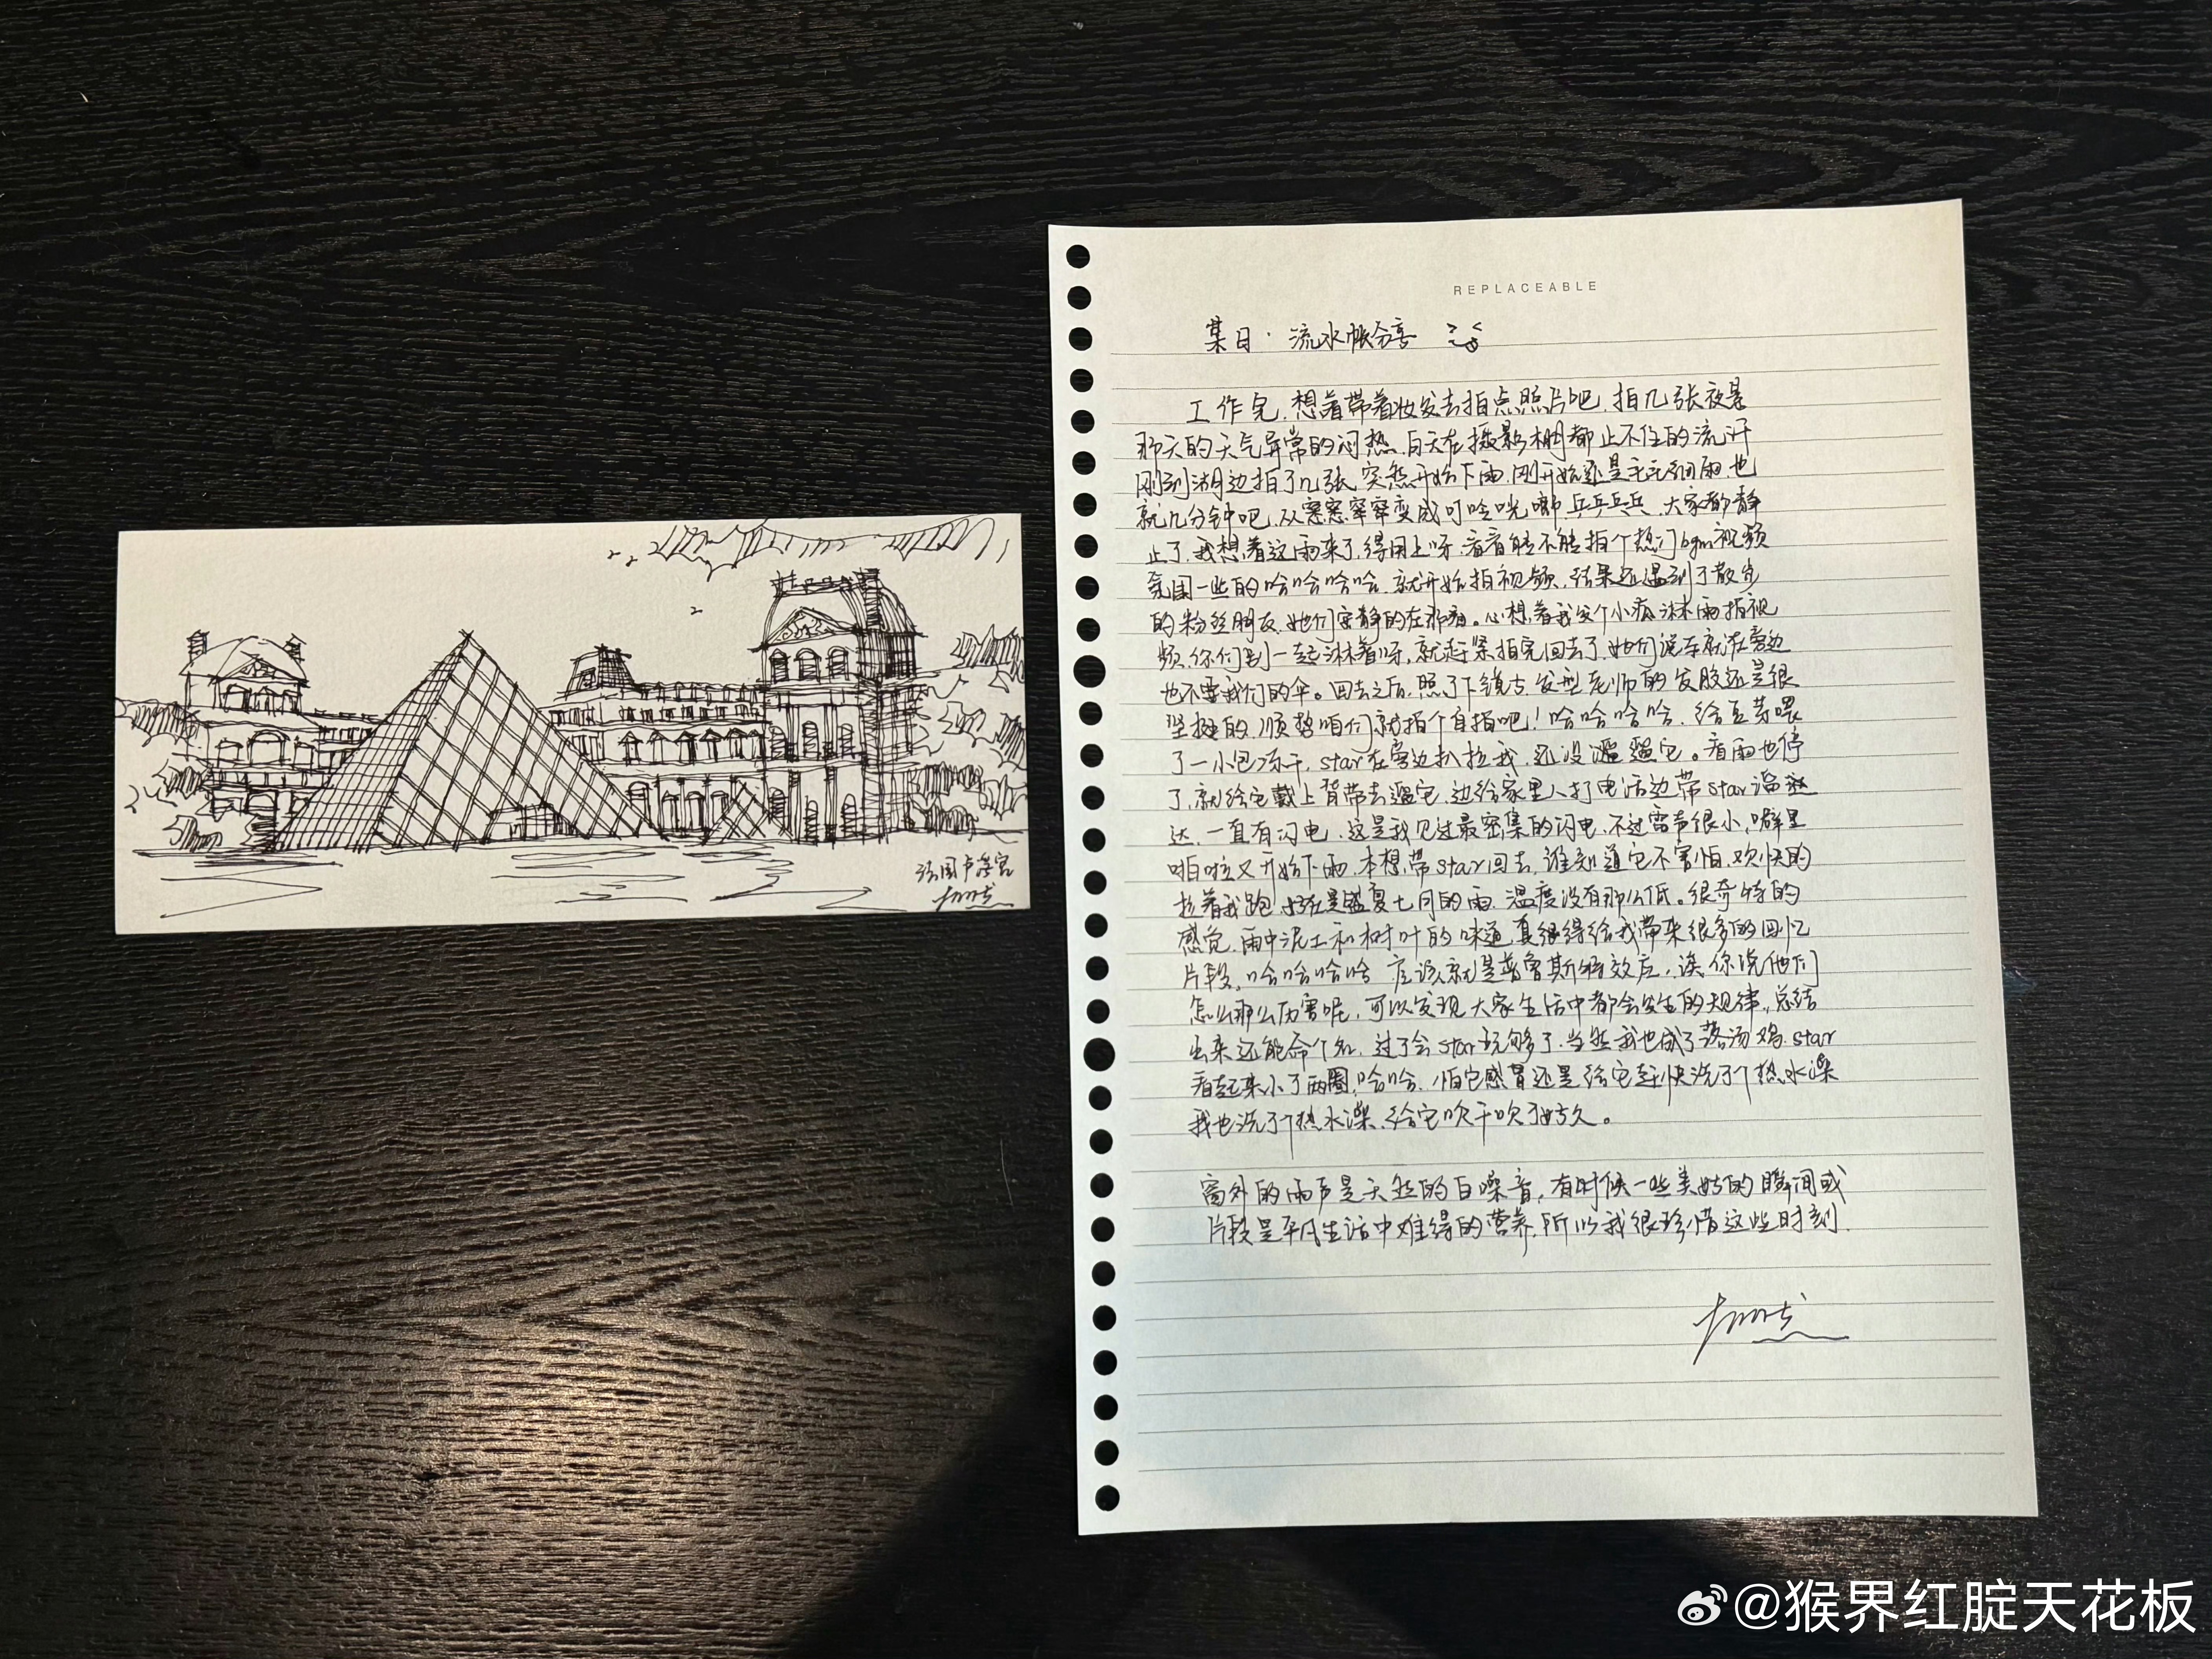 法国卢浮宫
REPLACEABLE
某日·流水帐分享
工作完,想着带着妆发去拍点照片吧,拍几张夜景
那天的天气异常的闷热,白天在摄影棚都止不住的流汗
刚到湖边拍了几张,突然开始下雨,刚开始还是毛毛细雨,也
就几分钟吧,从窸窸窣窣变成叮呤咣啷乒乒乓乓,大家都静
止了,我想着这雨来了,得用上呀,看看能不能拍个热门bgm视频
氛围一些的哈哈哈哈,就开始拍视频,结果还遇到了散步
的粉丝朋友,她们安静的在那看。心想着我这个小疯淋雨拍视
频,你们别一起淋着呀,就赶紧拍完回去了,她们说车就在旁边
也不要我们的伞。回去之后,照了下镜子,发型老师的发胶还是很
坚挺的,顺势咱们就拍个自拍吧!哈哈哈哈,给豆芽喂
了一小包冻干,star在旁边扒拉我,还没遛遛它。看雨也停
了,就给它戴上背带去遛它,边给家里人打电话边带star溜达
达,一直有闪电,这是我见过最密集的闪电,不过雷声很小,噼里
啪啦又开始下雨,本想带star回去,谁知道它不害怕,欢快的
拉着我跑,好在是盛夏七月的雨,温度没有那么低。很奇特的
感觉,雨中泥土和树叶的味道,真很得给我带来很多的回忆
片段,哈哈哈哈 应该就是普鲁斯特效应,诶,你说他们
怎么那么厉害呢,可以发现大家生活中都会发生的规律,总结
出来还能命个名,过了会star玩够了,当然我也成了落汤鸡,star
看起来小了两圈,哈哈,怕它感冒还是给它赶快洗了个热水澡
我也洗了个热水澡,给它吹干吹了好久。
窗外的雨声是天然的白噪音,有时候一些美好的瞬间或
片段是平凡生活中难得的营养,所以我很珍惜这些时刻.
@猴界红腚天花板